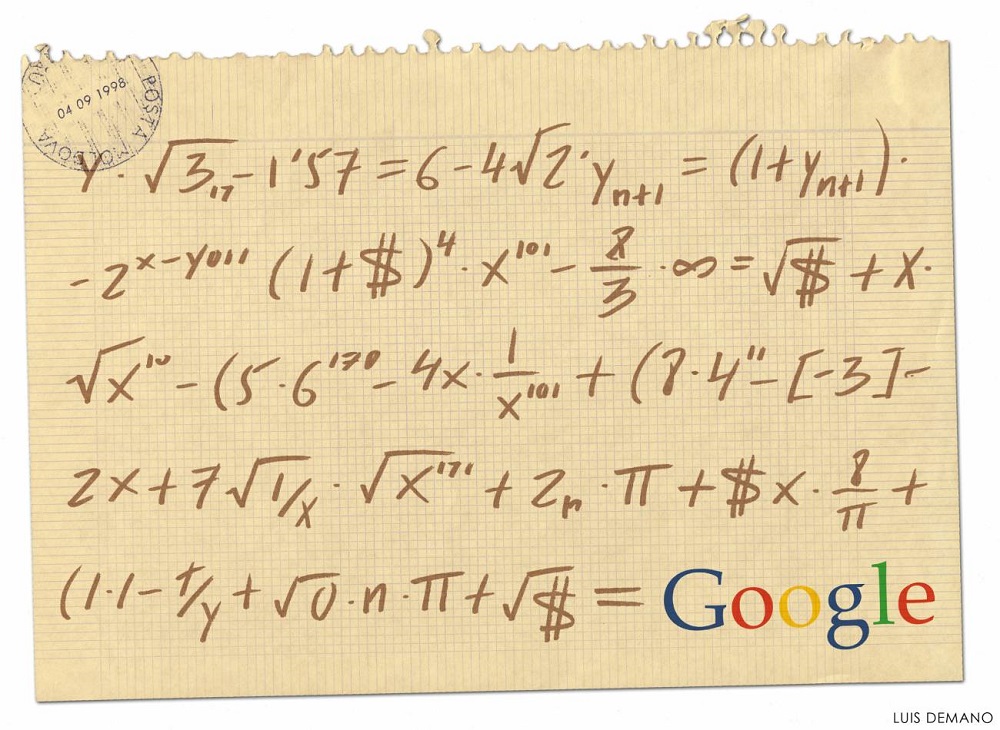 04 09 1998
POSTA MOLDOVA
y · √3,17 - 1'57 = 6 - 4√2 · yₙ₊₁ = (1 + yₙ₊₁) ·
- 2ˣ⁻ʸ⁰¹¹ (1 + $)⁴ · x¹⁰¹ - 8/3 · ∞ = √$ + x ·
√x¹⁰ - (5 · 6¹⁷⁰ - 4x · 1/x¹⁰¹ + (8 · 4¹¹ - [-3] -
2x + 7√1/x · √x¹⁷¹ + 2ₙ · π + $x · 8/π +
(1 · 1 - t/y + √0 · n · π + √$ = Google
LUIS DEMANO